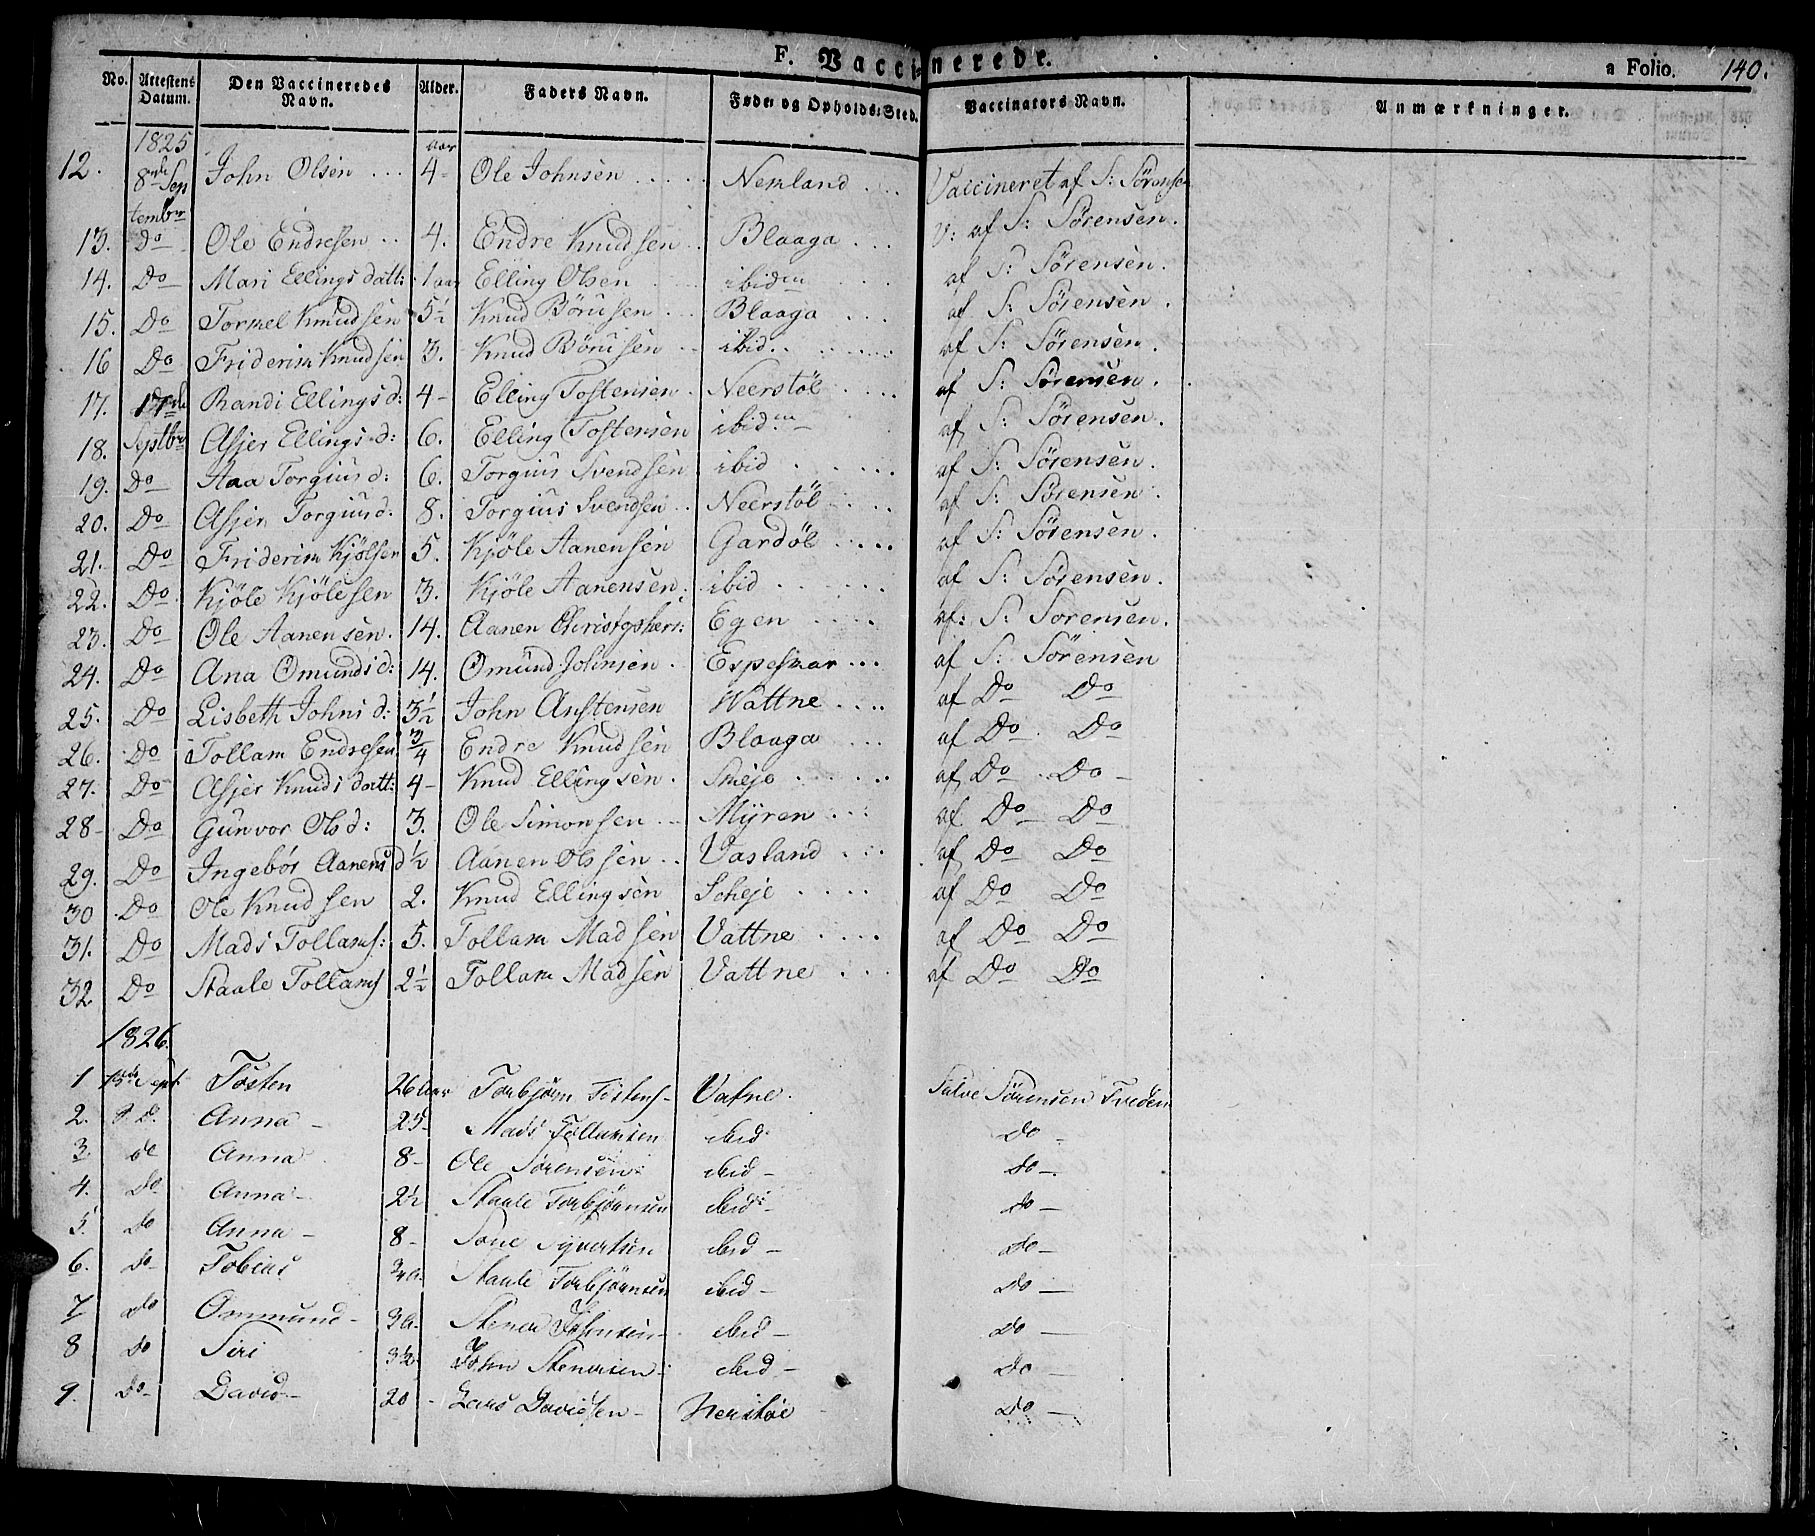 F. Vaccinerede. a Folio. 140.
No. Attestens Datum. Den Vaccineredes Navn. Alder. Faders Navn. Føde- og Opholds-Sted. Vaccinators Navn. Anmærkninger.
1825 aar
12. 8de Sep John Olsen 4- Ole Johnsen Nemland Vaccineret af S: Sörensen
tembr
13. Do Ole Endresen 4. Endre Knudsen Blaaga V: af S: Sörensen.
14. Do Mari Ellings datt: 1 aar Elling Olsen ibidm af S: Sörensen.
15. Do Tormel Knudsen 5½ Knud Börusen Blaaga af S: Sörensen.
16 Do Friderim Knudsen 3. Knud Börusen ibid. af S: Sörensen.
17. 17de Randi Ellings d: 4- Elling Tostensen Neerstöl af S: Sörensen.
18. Septbr Assjer Ellings d: 6. Elling Tostensen ibid.m af S: Sörensen.
19. Do Aaa Torgius d: 6. Torgius Svendsen ibid af S: Sörensen.
20. Do Assjer Torgius d: 8. Torgius Svendsen Neerstöl af S: Sörensen.
21. Do Friderim Kjölsen 5. Kjöle Aanensen Gardöl af S: Sörensen.
22. Do Kjöle Kjölesen 3. Kjöle Aanensen ibid af S: Sörensen.
23. Do Ole Aanensen. 14. Aanen Christophers: Egen af: S: Sorensen.
24. Do Ana Omunds d: 14. Omund Johnsen Espeskar af S: Sörensen
25. Do Lisbeth Johns d: 3½ John Austensen Wattne af Do Do
26. Do Tollam Endresen ¾ Endre Knudsen Blaaga af Do Do
27. Do Assjer Knuds datt: 4- Knud Ellingsen. Skeje af Do Do
28- Do Gunvor Ols d: 3. Ole Simonsen Myren af Do Do
29. Do Ingebör Aanens d ½ Aanen Olsen Vasland af Do Do
30 Do Ole Knudsen 2. Knud Ellingsen Scheje af Do Do
31. Do Mads Tollams: 5. Tollam Madsen Vattne af Do Do
32 Do Staale Tollams 2½ Tollam Madsen Vattne af Do Do
1826.
1 13de Sept. Tosten 26 Aar Torbjörn Tostens- Vatne. Salve Sörensen Tveden
2. D. Anna- 25- Mads Tollansen ibid do-
3. do Anna 8- Ole Sörensen ibid- do-
4. do Anna- 2½ Staale Torbjörnsen ibid- do-
5. do Anna- 8- Tone Syvertsen ibid- do-
6. do- Tobias ¾ a. Staale Torbjörnsen ibid- do-
7 do Ommund- 3 a. Stener Johnsen- ibid- do-
8 do Siri 3½ John Stenersen- ibid- do-
9. do- David- 20- Lars Davidsen- Nerstöe do-